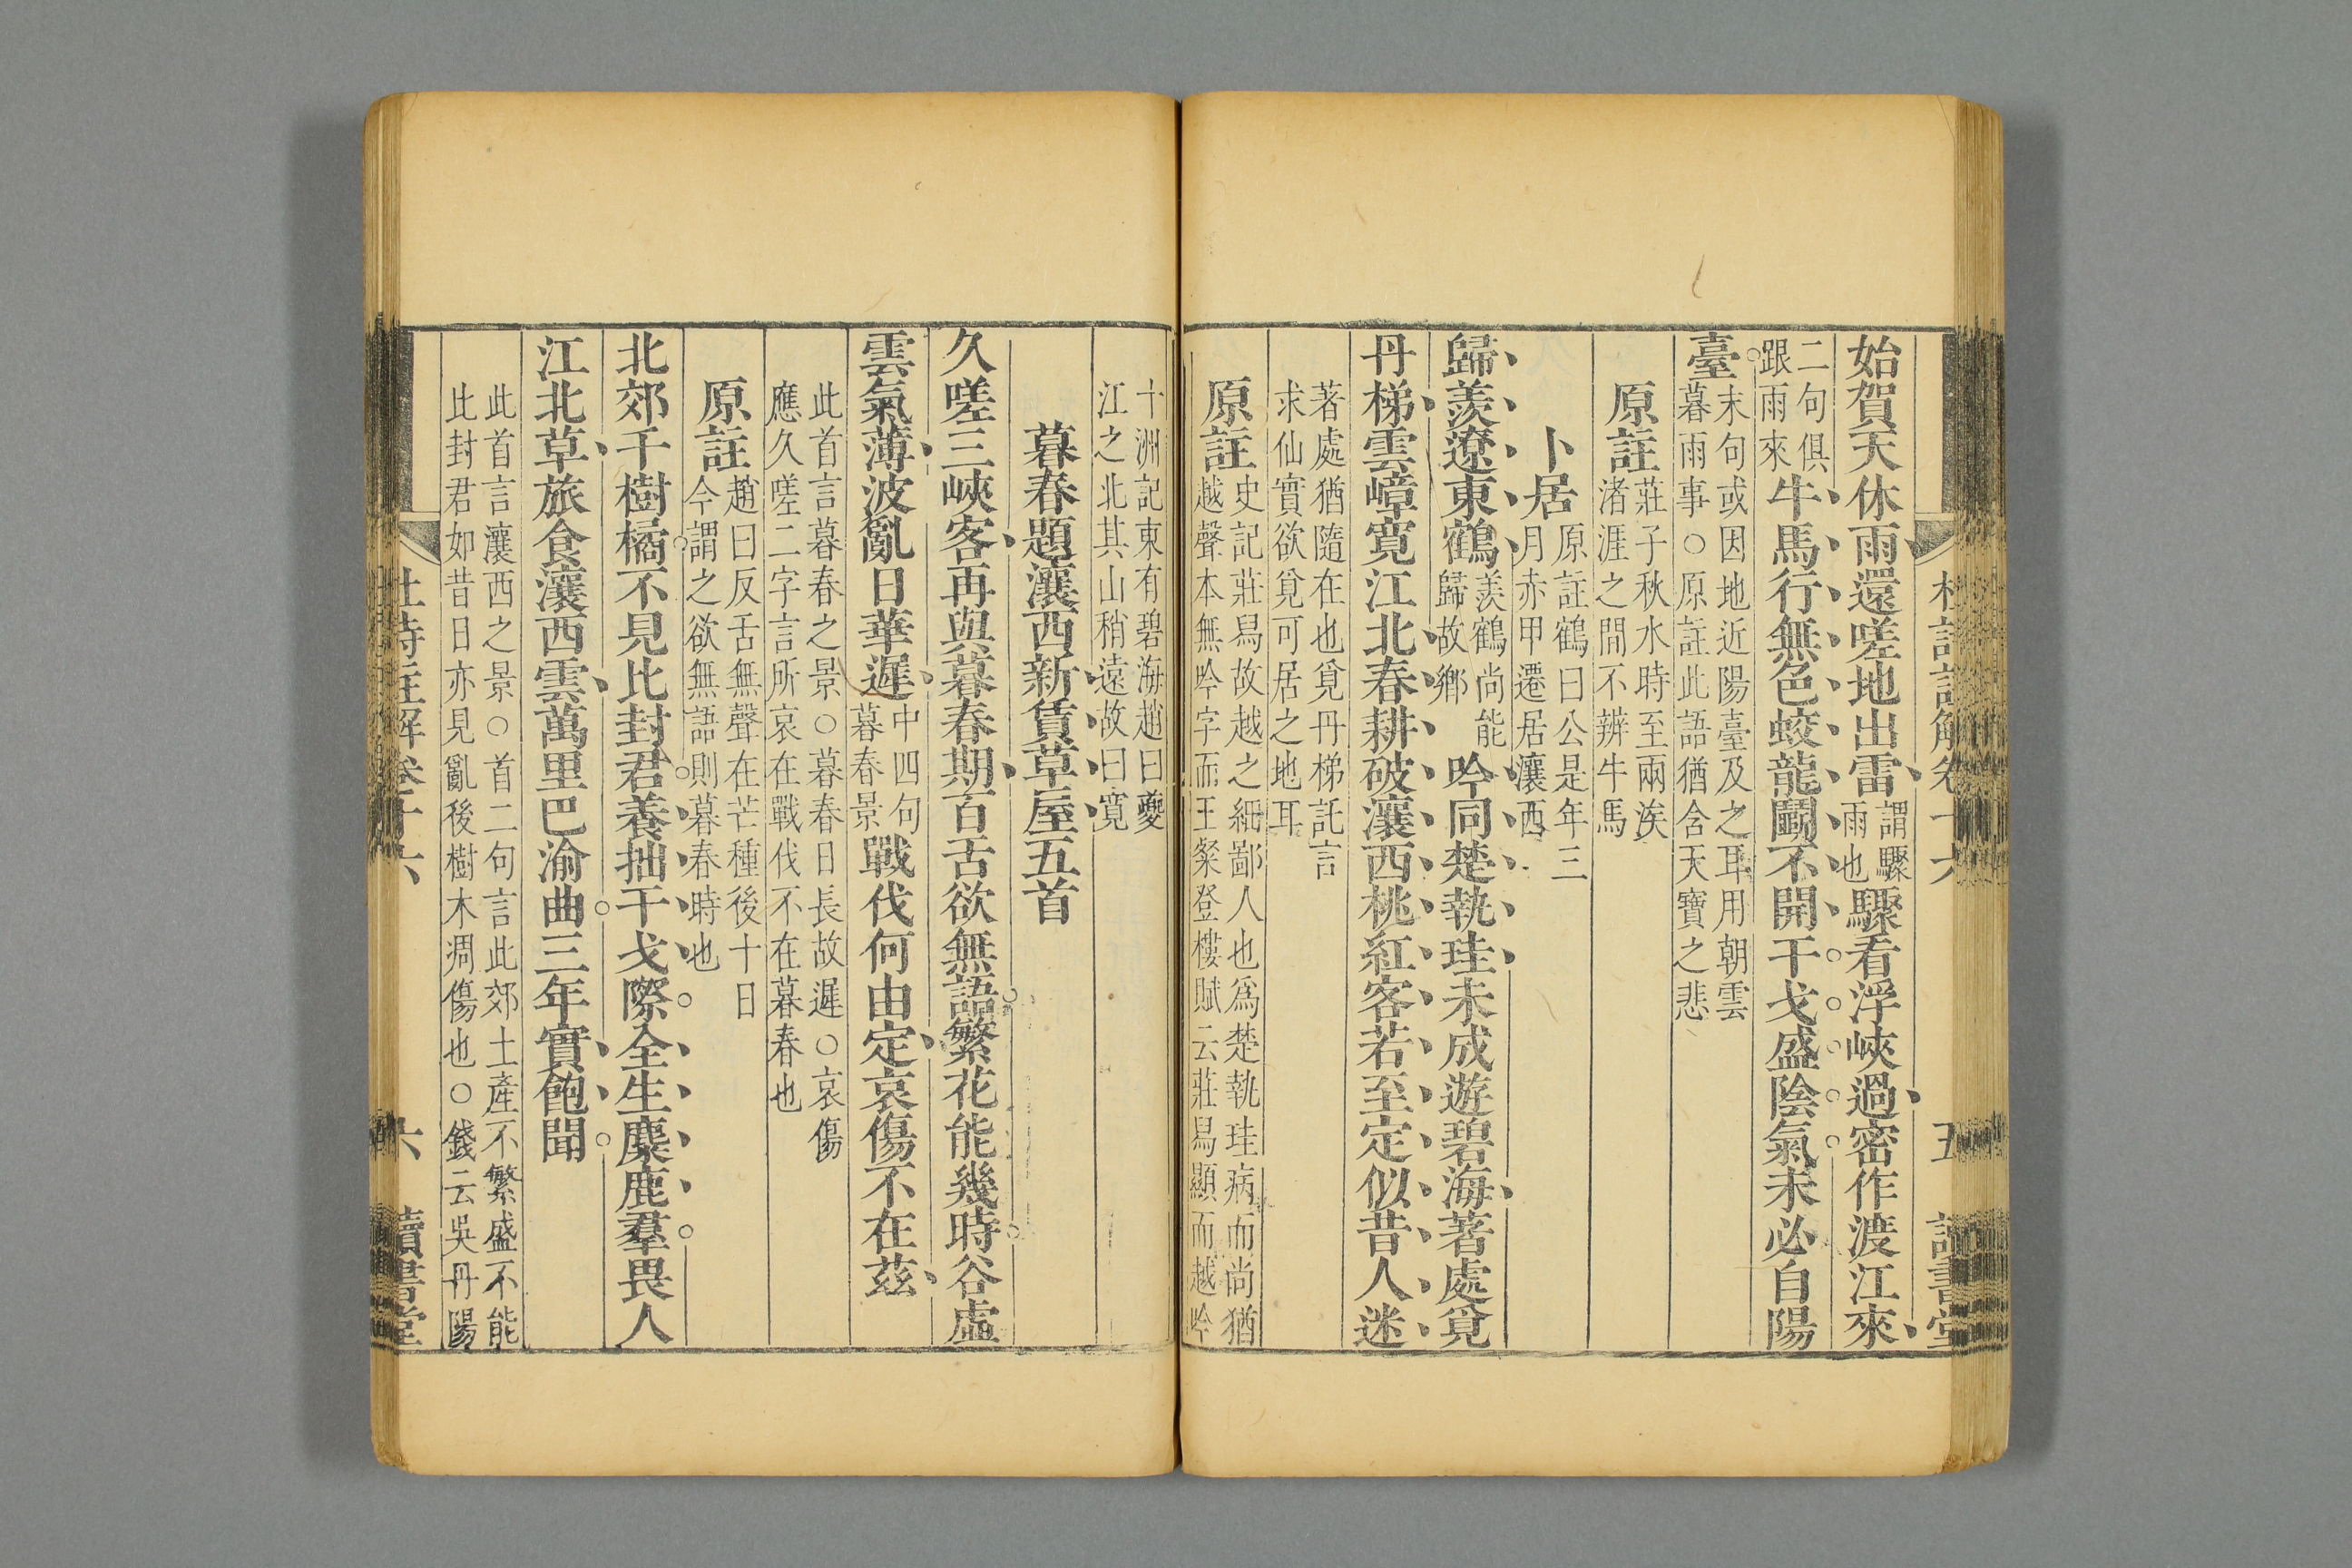 始賀天休雨還嗟地出雷謂驟雨也驟看浮峽過密作渡江來
二句俱跟雨來牛馬行無色蛟龍鬭不開干戈盛陰氣未必自陽
臺末句或因地近陽臺及之耳用朝雲暮雨事○原註此語猶含天寶之悲
原註莊子秋水時至兩涘渚涯之間不辨牛馬
卜居原註鶴曰公是年三月赤甲遷居瀼西
歸羨遼東鶴羨鶴尚能歸故鄉吟同楚執珪未成遊碧海著處覓
丹梯雲嶂寬江北春耕破瀼西桃紅客若至定似昔人迷
著處猶隨在也覓丹梯託言求仙實欲覓可居之地耳
原註史記莊舄故越之細鄙人也爲楚執珪病而尚猶越聲本無吟字而王粲登樓賦云莊舄顯而越吟
五
十洲記東有碧海趙曰夔江之北其山稍遠故曰寬
暮春題瀼西新賃草屋五首
久嗟三峽客再與暮春期百舌欲無語繁花能幾時谷虛
雲氣薄波亂日華遲中四句暮春景戰伐何由定哀傷不在茲
此首言暮春之景○暮春日長故遲○哀傷應久嗟二字言所哀在戰伐不在暮春也
原註趙曰反舌無聲在芒種後十日今謂之欲無語則暮春時也
北郊千樹橘不見比封君養拙干戈際全生麋鹿羣畏人
江北草旅食瀼西雲萬里巴渝曲三年實飽聞
此首言瀼西之景○首二句言此郊土產不繁盛不能比封君如昔日亦見亂後樹木凋傷也○錢云吳丹陽
杜詩註解卷十六 六 讀書堂